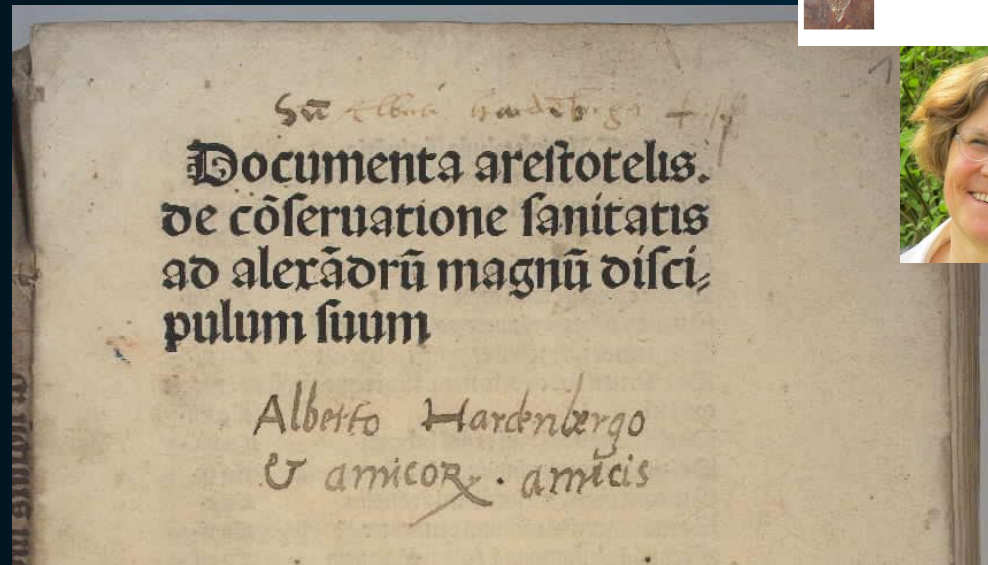 Sū Alberti Hardēbergo
Documenta areſtotelis.
de cōſeruatione ſanitatis
ad alexādrū magnū diſci⸗
pulum ſuum
Alberto Hardenbergo
& amicoꝝ. amicis
1